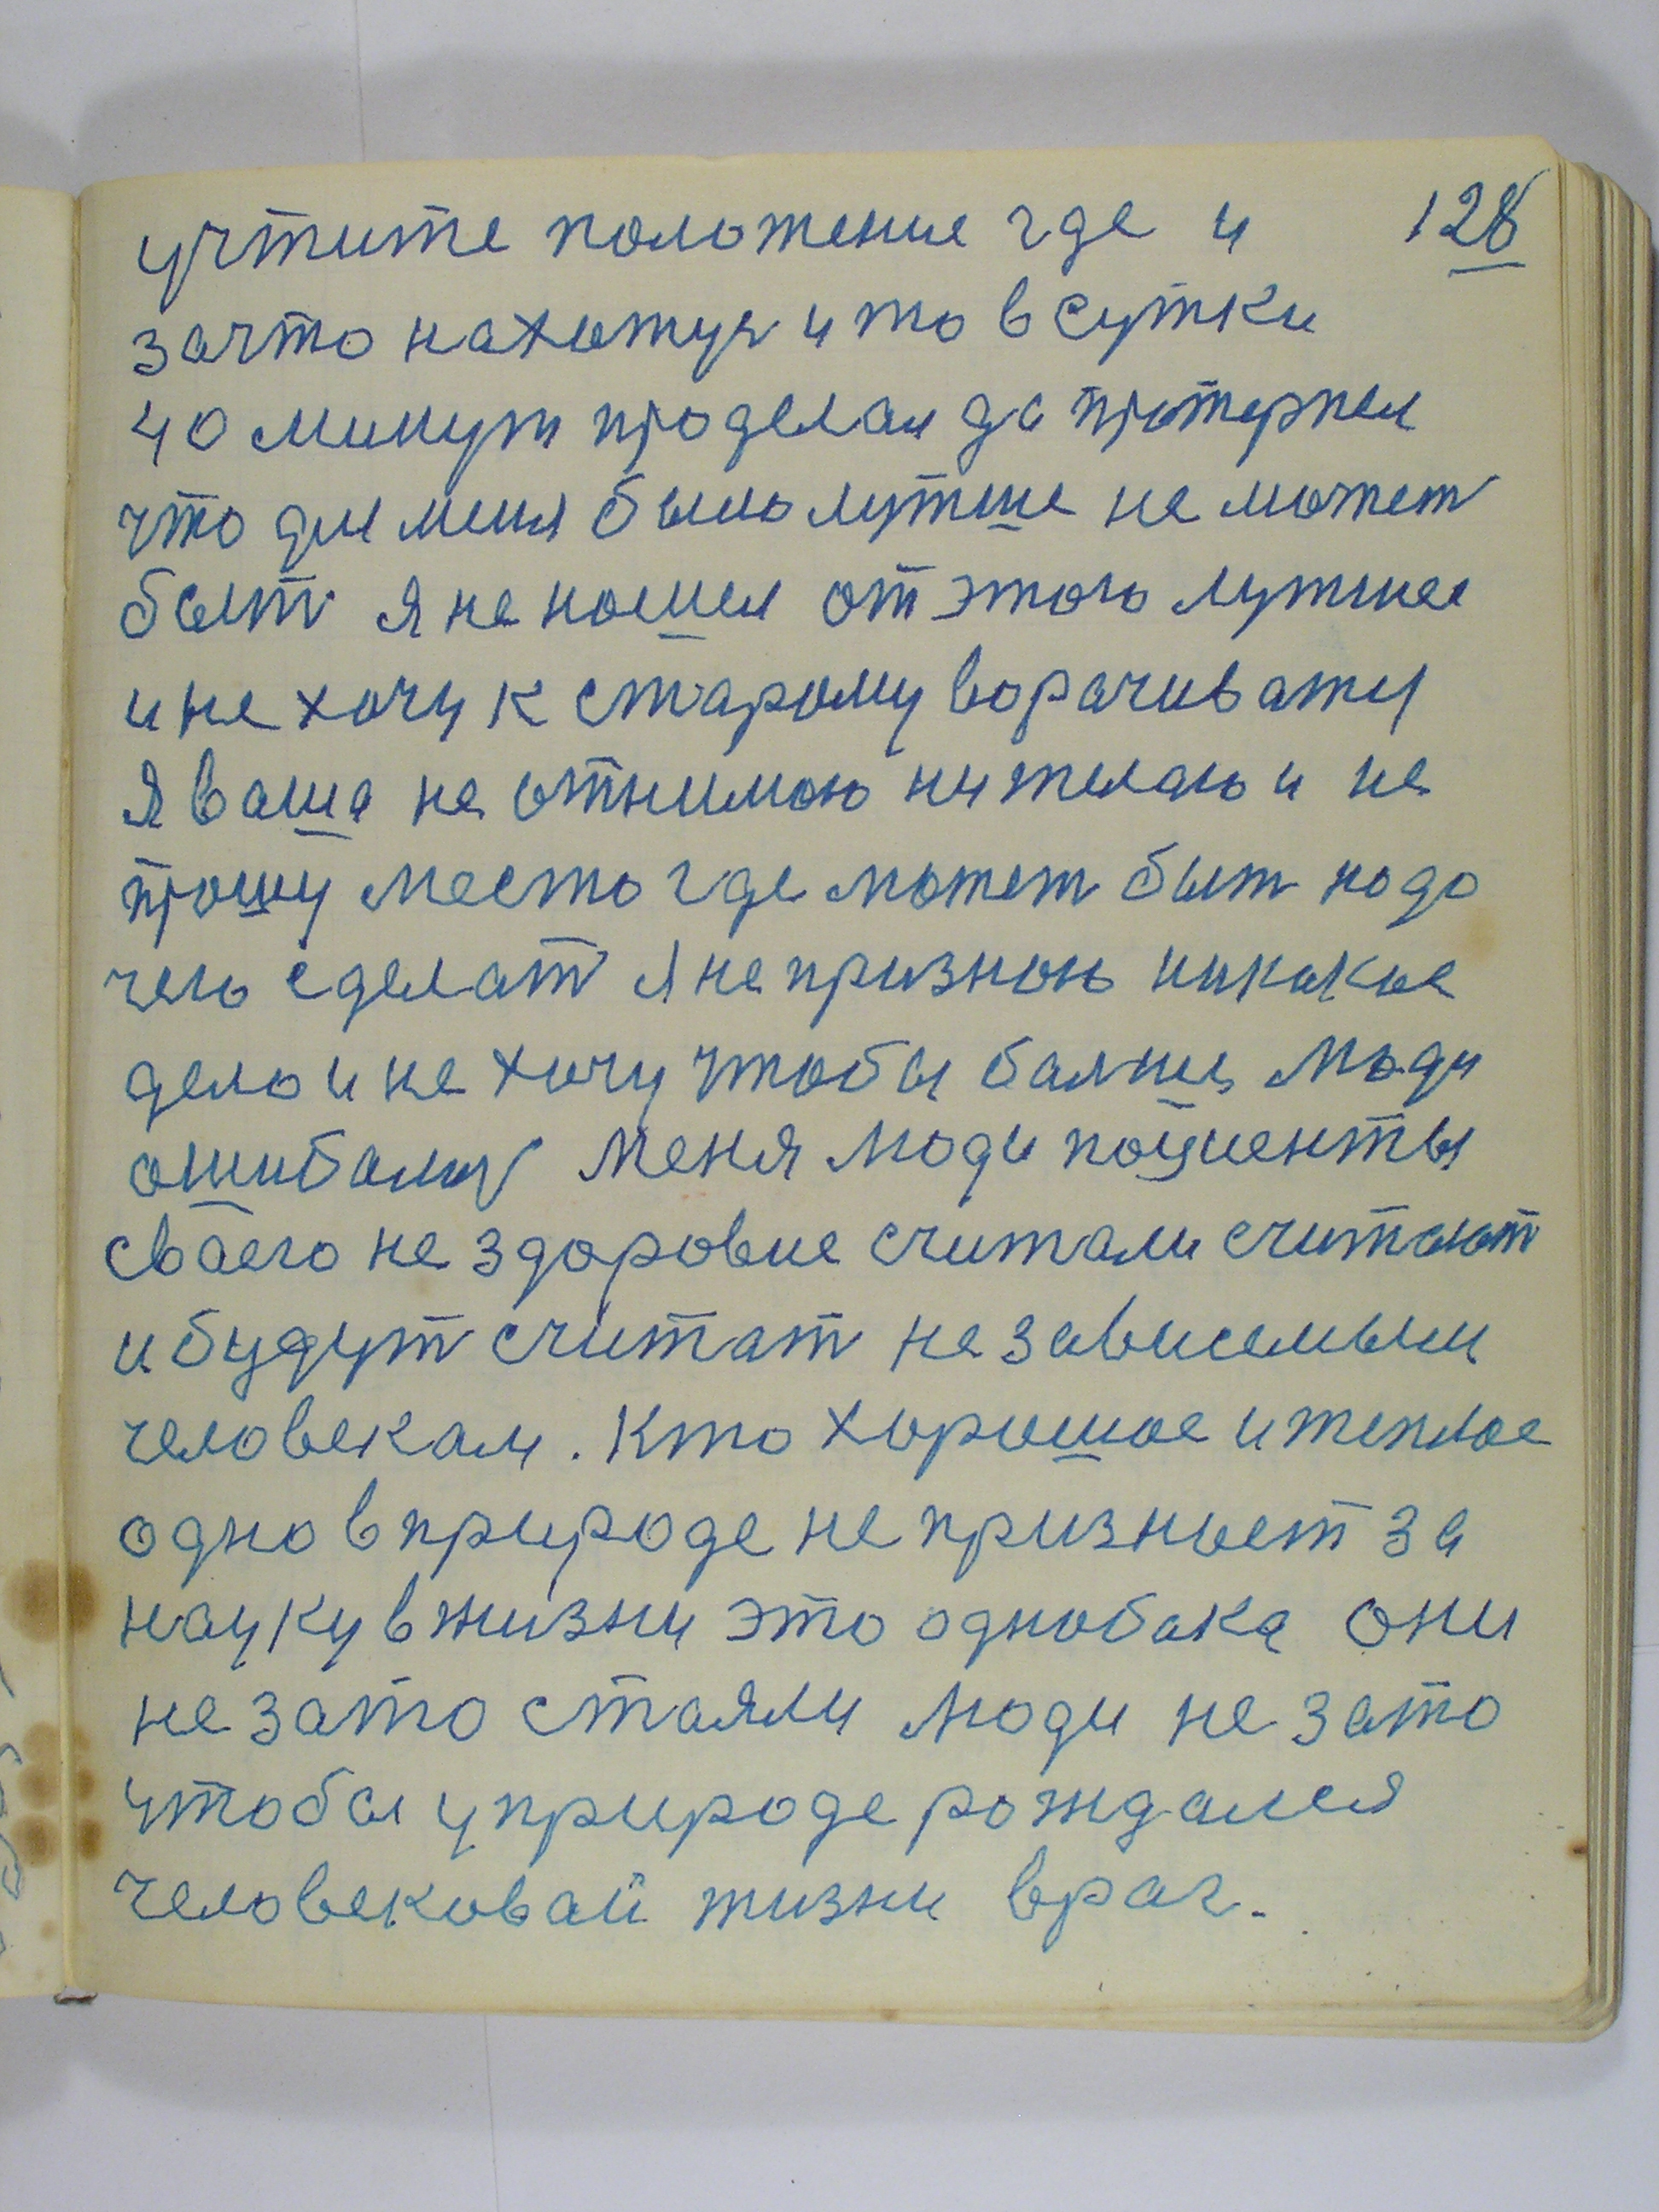 учтите положение где и 128
зачто нахожуся и то в сутки
40 минут проделал да протерпел
что для меня было лутше не может
быт я не ношел от этого лутшее
и не хочу к старому ворачиватся
я ваше не отнимаю ни желаю и не
прошу место где может быт надо
чего сделат я не признаю никакое
дело и не хочу чтобы балние люди
ошибались меня люди пациенты
сваего не здоровие считали считают
и будут считат независемым
человекам. Кто хорошое и теплое
одно в природе не признает за
науку в жизни это однобака они
не зато стаяли люди не зато
чтобы у природе рождался
человековай жизни враг.